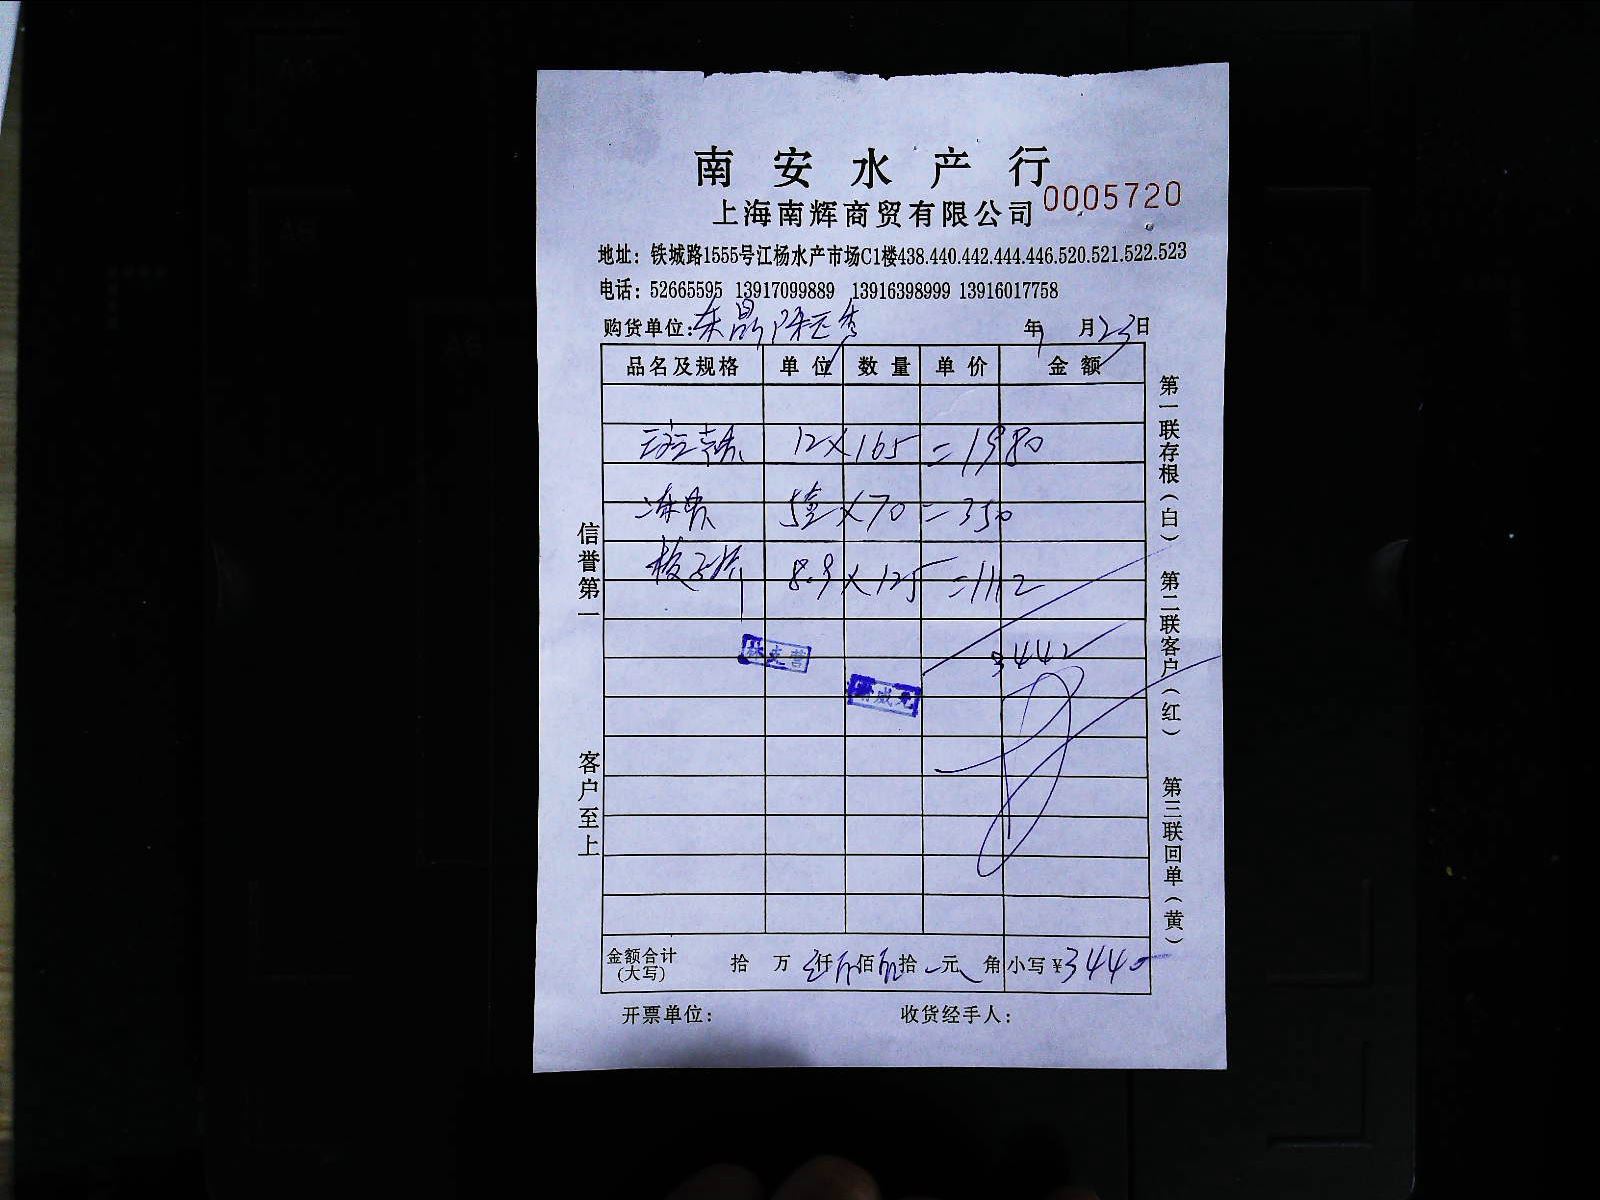 南安水产行
上海南辉商贸有限公司 0005720
地址：铁城路1555号江杨水产市场C1楼438.440.442.444.446.520.521.522.523
电话：52665595 13917099889 13916398999 13916017758
购货单位： 年 月23日
品名及规格 单位 数量 单价 金额
12×165=1980
5盒×70=350
8.9×125=1112
3442
金额合计（大写） 拾 万 仟 佰 拾 元 角 小写¥3440
开票单位： 收货经手人：
信誉第一 客户至上
第一联存根（白） 第二联客户（红） 第三联回单（黄）